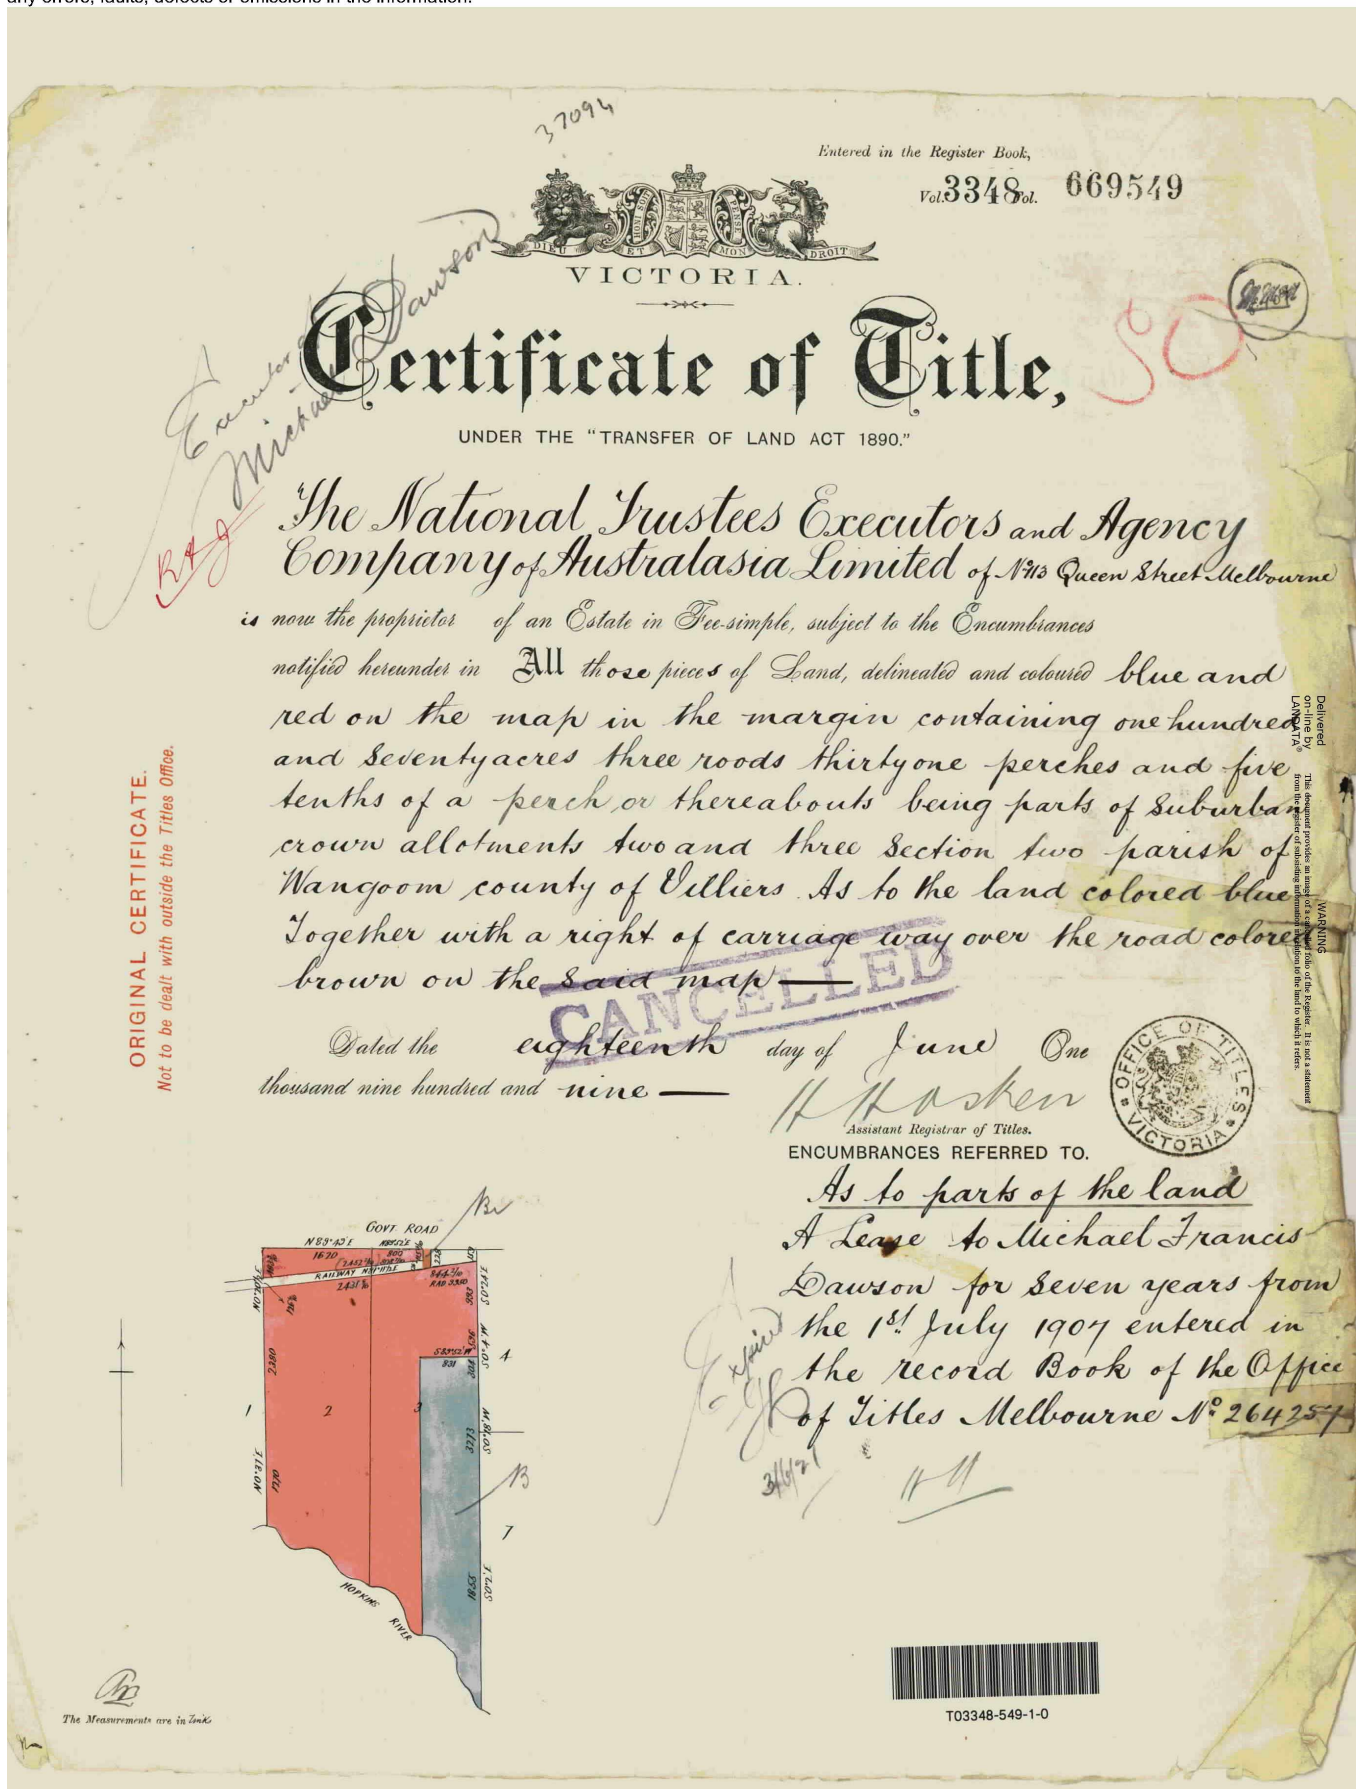 any errors, faults, defects or omissions in the information.
37094
Entered in the Register Book,
Vol. 3348 Vol. 669549
DIEU ET MON DROIT
VICTORIA.
Executor of
Michael Dawson
Certificate of Title,
SC
UNDER THE "TRANSFER OF LAND ACT 1890."
The National Trustees Executors and Agency
Company of Australasia Limited of No 113 Queen Street Melbourne
is now the proprietor of an Estate in Fee-simple, subject to the Encumbrances
notified hereunder in All those pieces of Land, delineated and coloured blue and
red on the map in the margin containing one hundred
and Seventy acres three roods thirty one perches and five
tenths of a perch or thereabouts being parts of Suburban
crown allotments two and three Section two parish of
Wangoom county of Villiers. As to the land colored blue
Together with a right of carriage way over the road colored
brown on the said map
CANCELLED
Dated the eighteenth day of June One
thousand nine hundred and nine
H Hosken
Assistant Registrar of Titles.
OFFICE OF TITLES
VICTORIA
ENCUMBRANCES REFERRED TO.
As to parts of the land
A Lease to Michael Francis
Dawson for Seven years from
the 1st July 1907 entered in
the record Book of the Office
of Titles Melbourne No 264257
Expired
3/6/21
HH
ORIGINAL CERTIFICATE.
Not to be dealt with outside the Titles Office.
Delivered
on-line by
LANDATA®
WARNING
This document provides an image of a cancelled folio of the Register. It is not a statement
from the register of subsisting information in relation to the land to which it refers.
GOVT. ROAD
N 89°43'E
1620
800
RAILWAY
2431
S 89°52'W
831
2280
1710
3273
1855
1
2
3
4
7
B
HOPKINS
RIVER
The Measurements are in Links
T03348-549-1-0